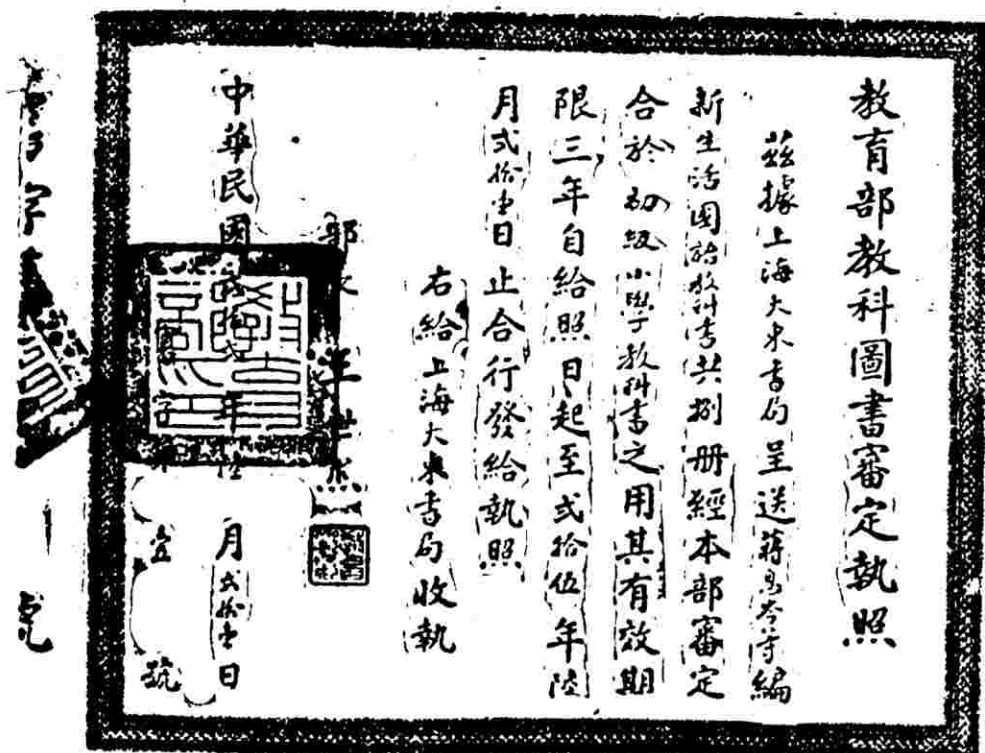 教育部教科圖書審定執照
茲據上海大東書局呈送蔣息岑等編
新生活國語教科書共捌册經本部審定
合於初級小學教科書之用其有效期
限三年自給照日起至弍拾伍年陸
月弍拾壹日止合行發給執照
右給上海大東書局收執
部長王世杰
中華民國 年陸月弍拾壹日
字第 壹 號